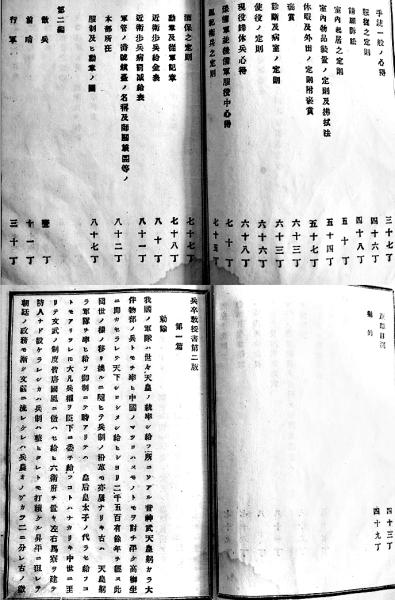 手法一般ノ心得 三十七丁
服従之定則 四十六丁
諸願訴訟 四十八丁
室内起居之定則 五十丁
室内物品装置ノ定則及拂拭法 五十四丁
休暇及外出ノ定則附嵌賞 五十七丁
嵌賞 六十三丁
診斷及病室ノ定則 六十三丁
使役ノ定則 六十六丁
現役歸休兵心得 六十八丁
豫備軍並後備軍服役中心得 七十丁
風紀衛兵之定則 七十五丁
擔保之定則 七十七丁
勳章及從軍記章 七十八丁
近衛歩兵給金表 八十丁
近衛歩兵病罰減給表 八十一丁
軍管ノ番號鎭臺ノ名稱及師團菓團等ノ本部所在 八十二丁
服制及ヒ勳章ノ圖 八十七丁
第二編
散兵 壹丁
前哨 十一丁
行軍 三十丁
四十三丁
四十九丁
兵卒教授書第二版
第一篇
勅諭
我國ノ軍隊ハ世々天皇ノ統率シ給フ所ニソアル昔神武天皇躬カラ大
伴物部ノ兵トモヲ率ヒ中國ノマツロハヌモノトモヲ討チ平ケ高御座
ニ即カセラレテ天下シロシメシ給ヒシヨリ二千五百有餘年ヲ經ヌ此
間世ノ樣ノ移リ換ルニ隨ヒテ兵制ノ沿革モ亦屢ナリキ古ハ天皇躬
ラ軍隊ヲ率ヒ給フ御制ニテ時アリテハ皇后皇太子ノ代ラセ給フコ
トモアリツレト大凡兵權ヲ臣下ニ委ネ給フコトハナカリキ中世ニ至
リテ文武ノ制度皆唐國風ニ傚ハセ給ヒ六衛府ヲ置キ左右馬寮ヲ建テ
防人ナト設ケラレシカハ兵制ハ整ヒタレトモ打續ケル昇平ニ狃レテ
朝廷ノ政務モ漸ク文弱ニ流レケレハ兵農オノヅカラ二ニ分レ古ノ徴